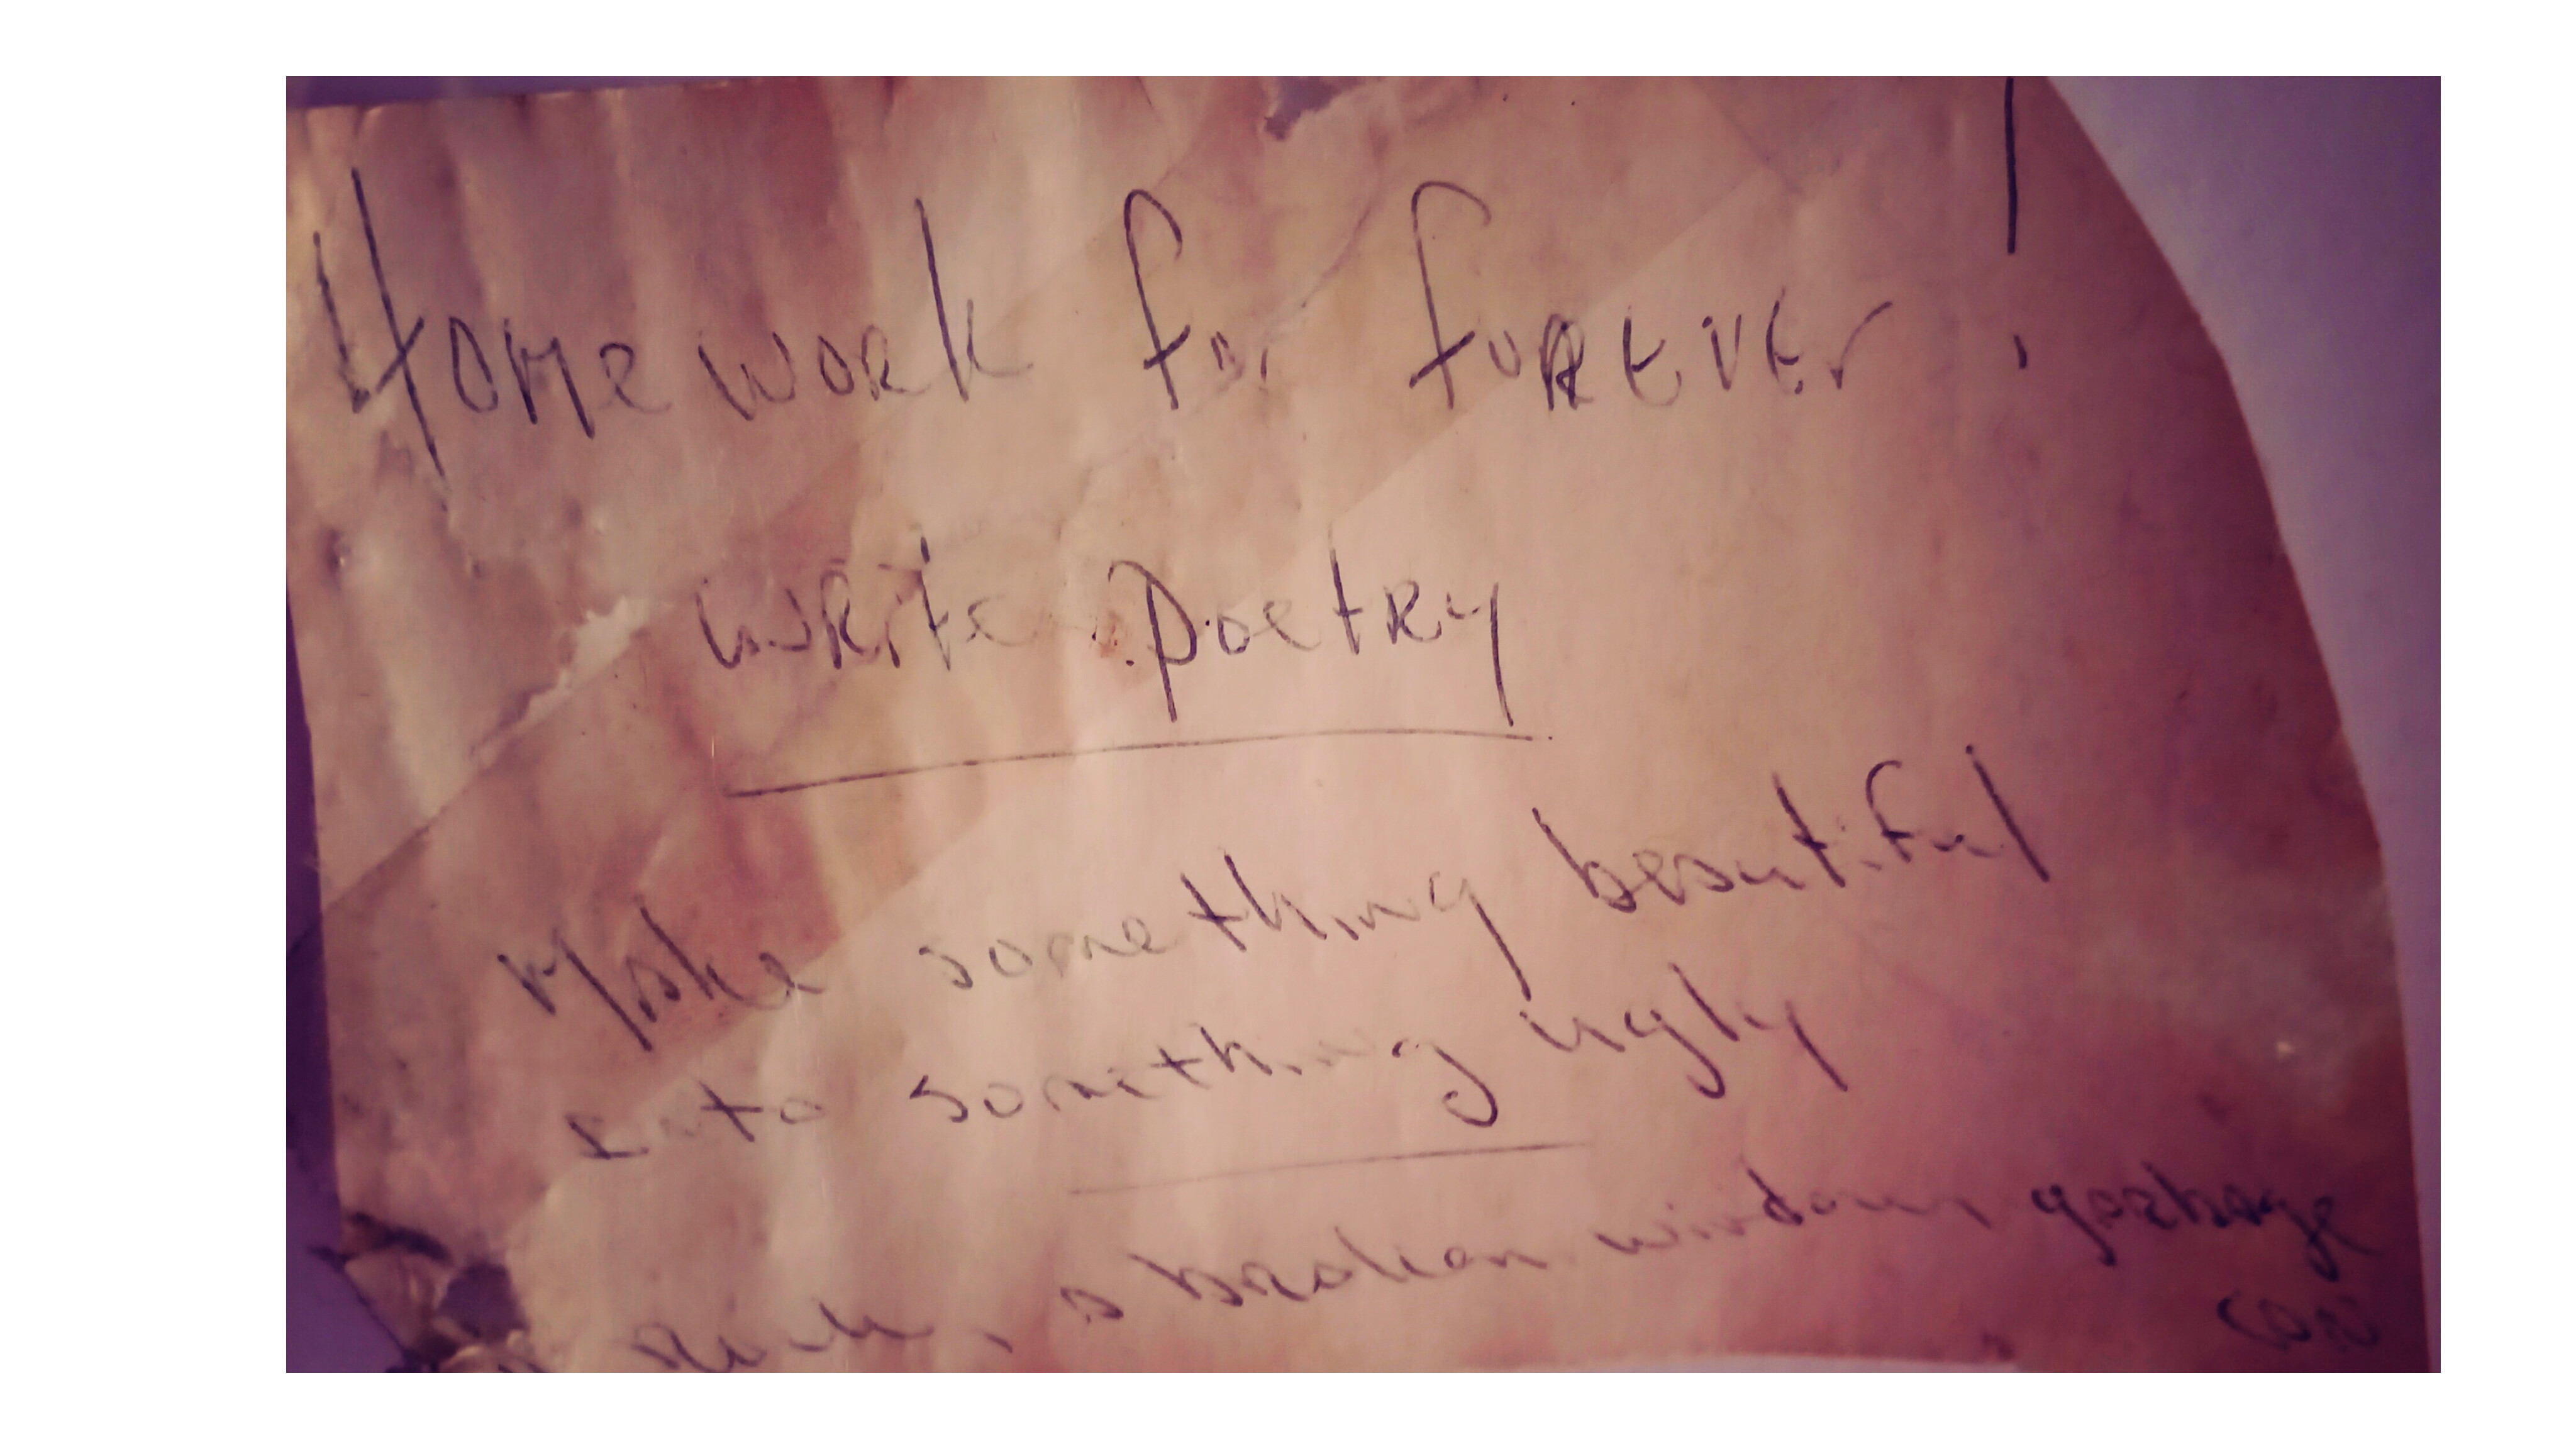 Homework for forever!
write poetry
Make something beautiful
into something ugly
rock, a broken window garbage
can